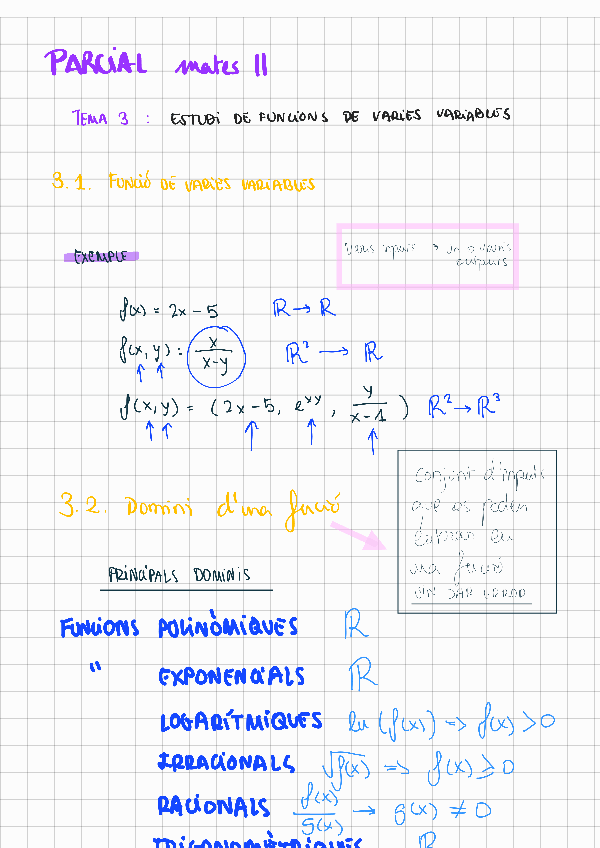 PARCIAL mates II
TEMA 3 : ESTUDI DE FUNCIONS DE VARIES VARIABLES
3.1. FUNCIÓ DE VARIES VARIABLES
EXEMPLE
Varis inputs → un o varis
outputs
f(x) = 2x - 5 ℝ → ℝ
f(x, y) = x/(x-y) ℝ² → ℝ
f(x, y) = (2x-5, e^xy, y/(x-1)) ℝ² → ℝ³
3.2. Domini d'una funció
conjunt d'inputs
que es poden
en
una funció
PRINCIPALS DOMINIS
FUNCIONS POLINÒMIQUES ℝ
" EXPONENCIALS ℝ
LOGARÍTMIQUES ln(f(x)) => f(x) > 0
IRRACIONALS √f(x) => f(x) ≥ 0
RACIONALS f(x)/g(x) → g(x) ≠ 0
TRIGONOMÈTRIQUES ℝ